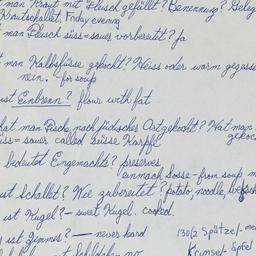 man Kraut mit Fleisch gefüllt? Benennung? Geleg
Krautschallet, Friday evening
man Fleisch süss=sauer vorbereitet? Ja
man Kalbsfüsse gekocht? Heiss oder warm gegesse
nein. - for soup
ist Einbrenn? flour with fat
hat man Fische nach jüdischer Art gekocht? Hat man
gekoc
süss=sauer called süsse Karpfe
bedeutet Eingemachts? preserves
einmach sosse - from soup m
ist Schallet? Wie zubereitet? potato, noodle,
ist Kugel? - sweet Kugel. cooked.
ist Zimmes? - never heard
130/2 Spätzel -
Krimsel: äpfel